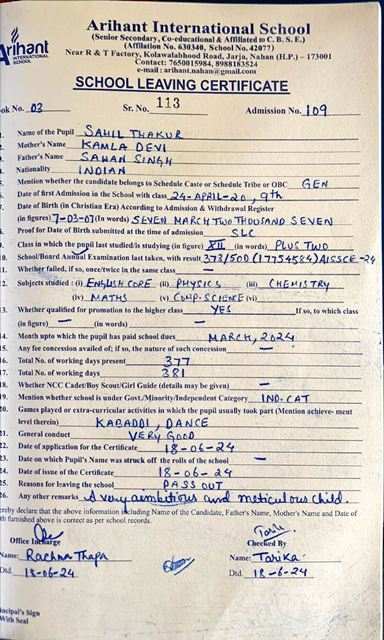 Arihant International School
(Senior Secondary, Co-educational & Affiliated to C. B. S. E.)
(Affilation No. 630340, School No. 42077)
Near R & T Factory, Kolawalabhood Road, Jarja, Nahan (H.P.) – 173001
Contact: 7650015984, 8988183524
e-mail : arihant.nahan@gmail.com
Arihant
INTERNATIONAL
SCHOOL
SCHOOL LEAVING CERTIFICATE
ok No. 03 Sr. No. 113 Admission No. 109
Name of the Pupil SAHIL THAKUR
Mother's Name KAMLA DEVI
Father's Name SAHAN SINGH
Nationality INDIAN
Mention whether the candidate belongs to Schedule Caste or Schedule Tribe or OBC GEN
Date of first Admission in the School with class 24-APRIL-20, 9th
Date of Birth (in Christian Era) According to Admission & Withdrawal Register
(in figures) 7-03-07 (In words) SEVEN MARCH TWO THOUSAND SEVEN
Proof for Date of Birth submitted at the time of admission SLC
Class in which the pupil last studied/is studying (in figure) XII (in words) PLUS TWO
School/Board Annual Examination last taken, with result 373/500 (17754584) AISSCE-24
Whether failed, if so, once/twice in the same class —
Subjects studied : (i) ENGLISH CORE (ii) PHYSICS (iii) CHEMISTRY
(iv) MATHS (v) COMP. SCIENCE (vi)
Whether qualified for promotion to the higher class YES If so, to which class
(in figure) — (in words) —
Month upto which the pupil has paid school dues MARCH, 2024
Any fee concession availed of; if so, the nature of such concession —
Total No. of working days present 377
Total No. of working days 381
Whether NCC Cadet/Boy Scout/Girl Guide (details may be given) —
Mention whether school is under Govt./Minority/Independent Category IND. CAT
Games played or extra-curricular activities in which the pupil usually took part (Mention achieve- ment
level therein) KABADDI, DANCE
General conduct VERY GOOD
Date of application for the Certificate 18-06-24
Date on which Pupil's Name was struck off the rolls of the school —
Date of issue of the Certificate 18-06-24
Reasons for leaving the school PASS OUT
Any other remarks A very ambitious and meticulous child.
ereby declare that the above information including Name of the Candidate, Father's Name, Mother's Name and Date of
th furnished above is correct as per school records.
Office Incharge Checked By
Name: Rachna Thapa Name: Tarika
Dtd. 18-06-24 Dtd. 18-6-24
incipal's Sign
With Seal